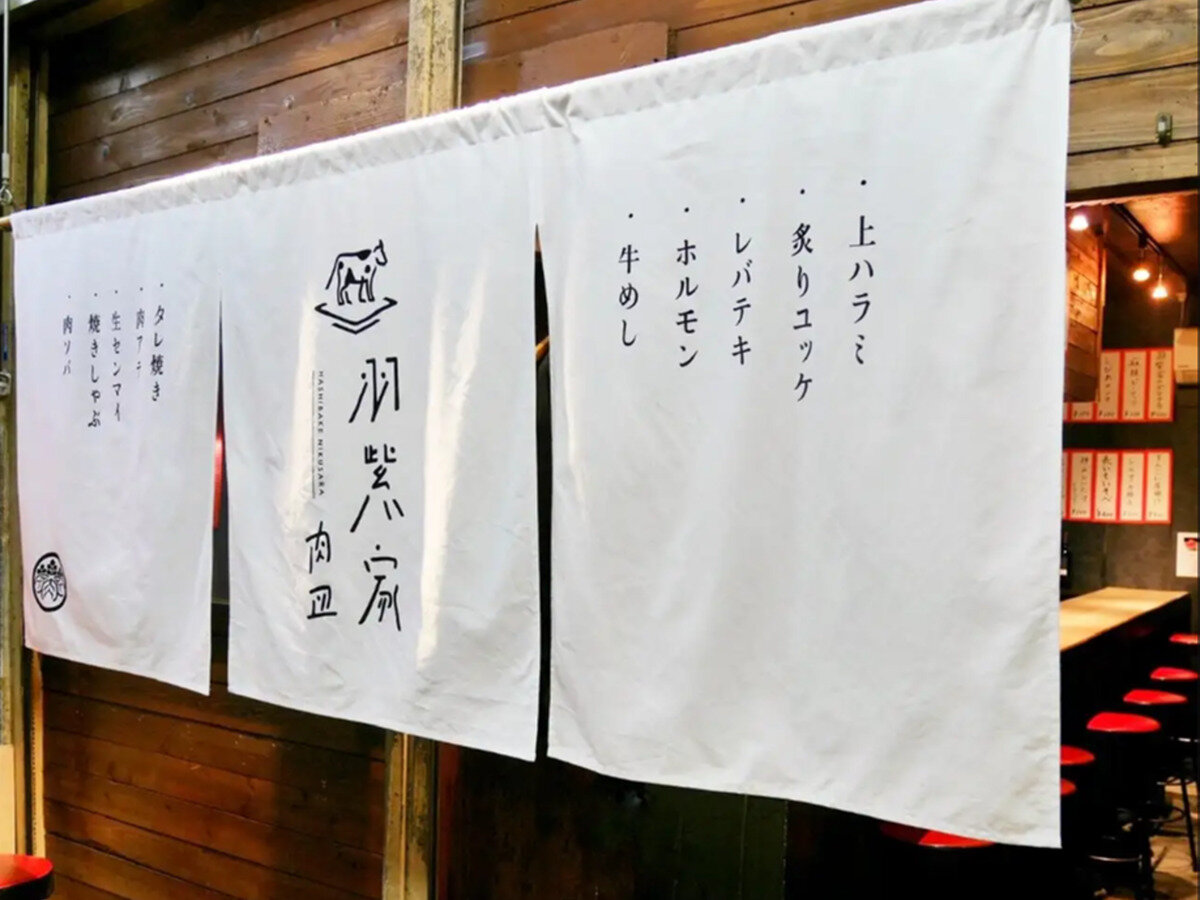 ・上ハラミ
・炙りユッケ
・レバテキ
・ホルモン
・牛めし
羽紫家
肉皿
HASHIBAKE NIKUSARA
・タレ焼き
・肉アテ
・生センマイ
・焼きしゃぶ
・肉ソバ